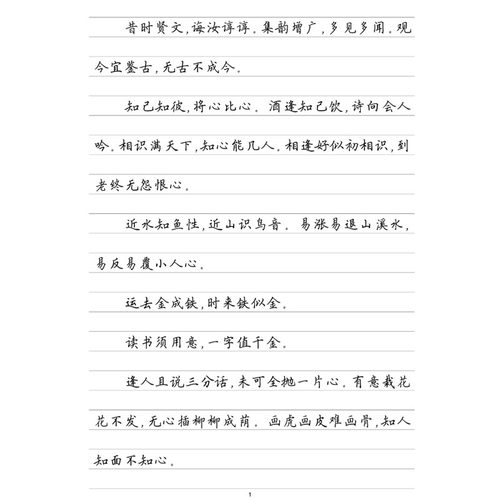 昔时贤文,诲汝谆谆。集韵增广,多见多闻。观
今宜鉴古,无古不成今。
知己知彼,将心比心。酒逢知己饮,诗向会人
吟。相识满天下,知心能几人。相逢好似初相识,到
老终无怨恨心。
近水知鱼性,近山识鸟音。易涨易退山溪水,
易反易覆小人心。
运去金成铁,时来铁似金。
读书须用意,一字值千金。
逢人且说三分话,未可全抛一片心。有意栽花
花不发,无心插柳柳成荫。画虎画皮难画骨,知人
知面不知心。
1